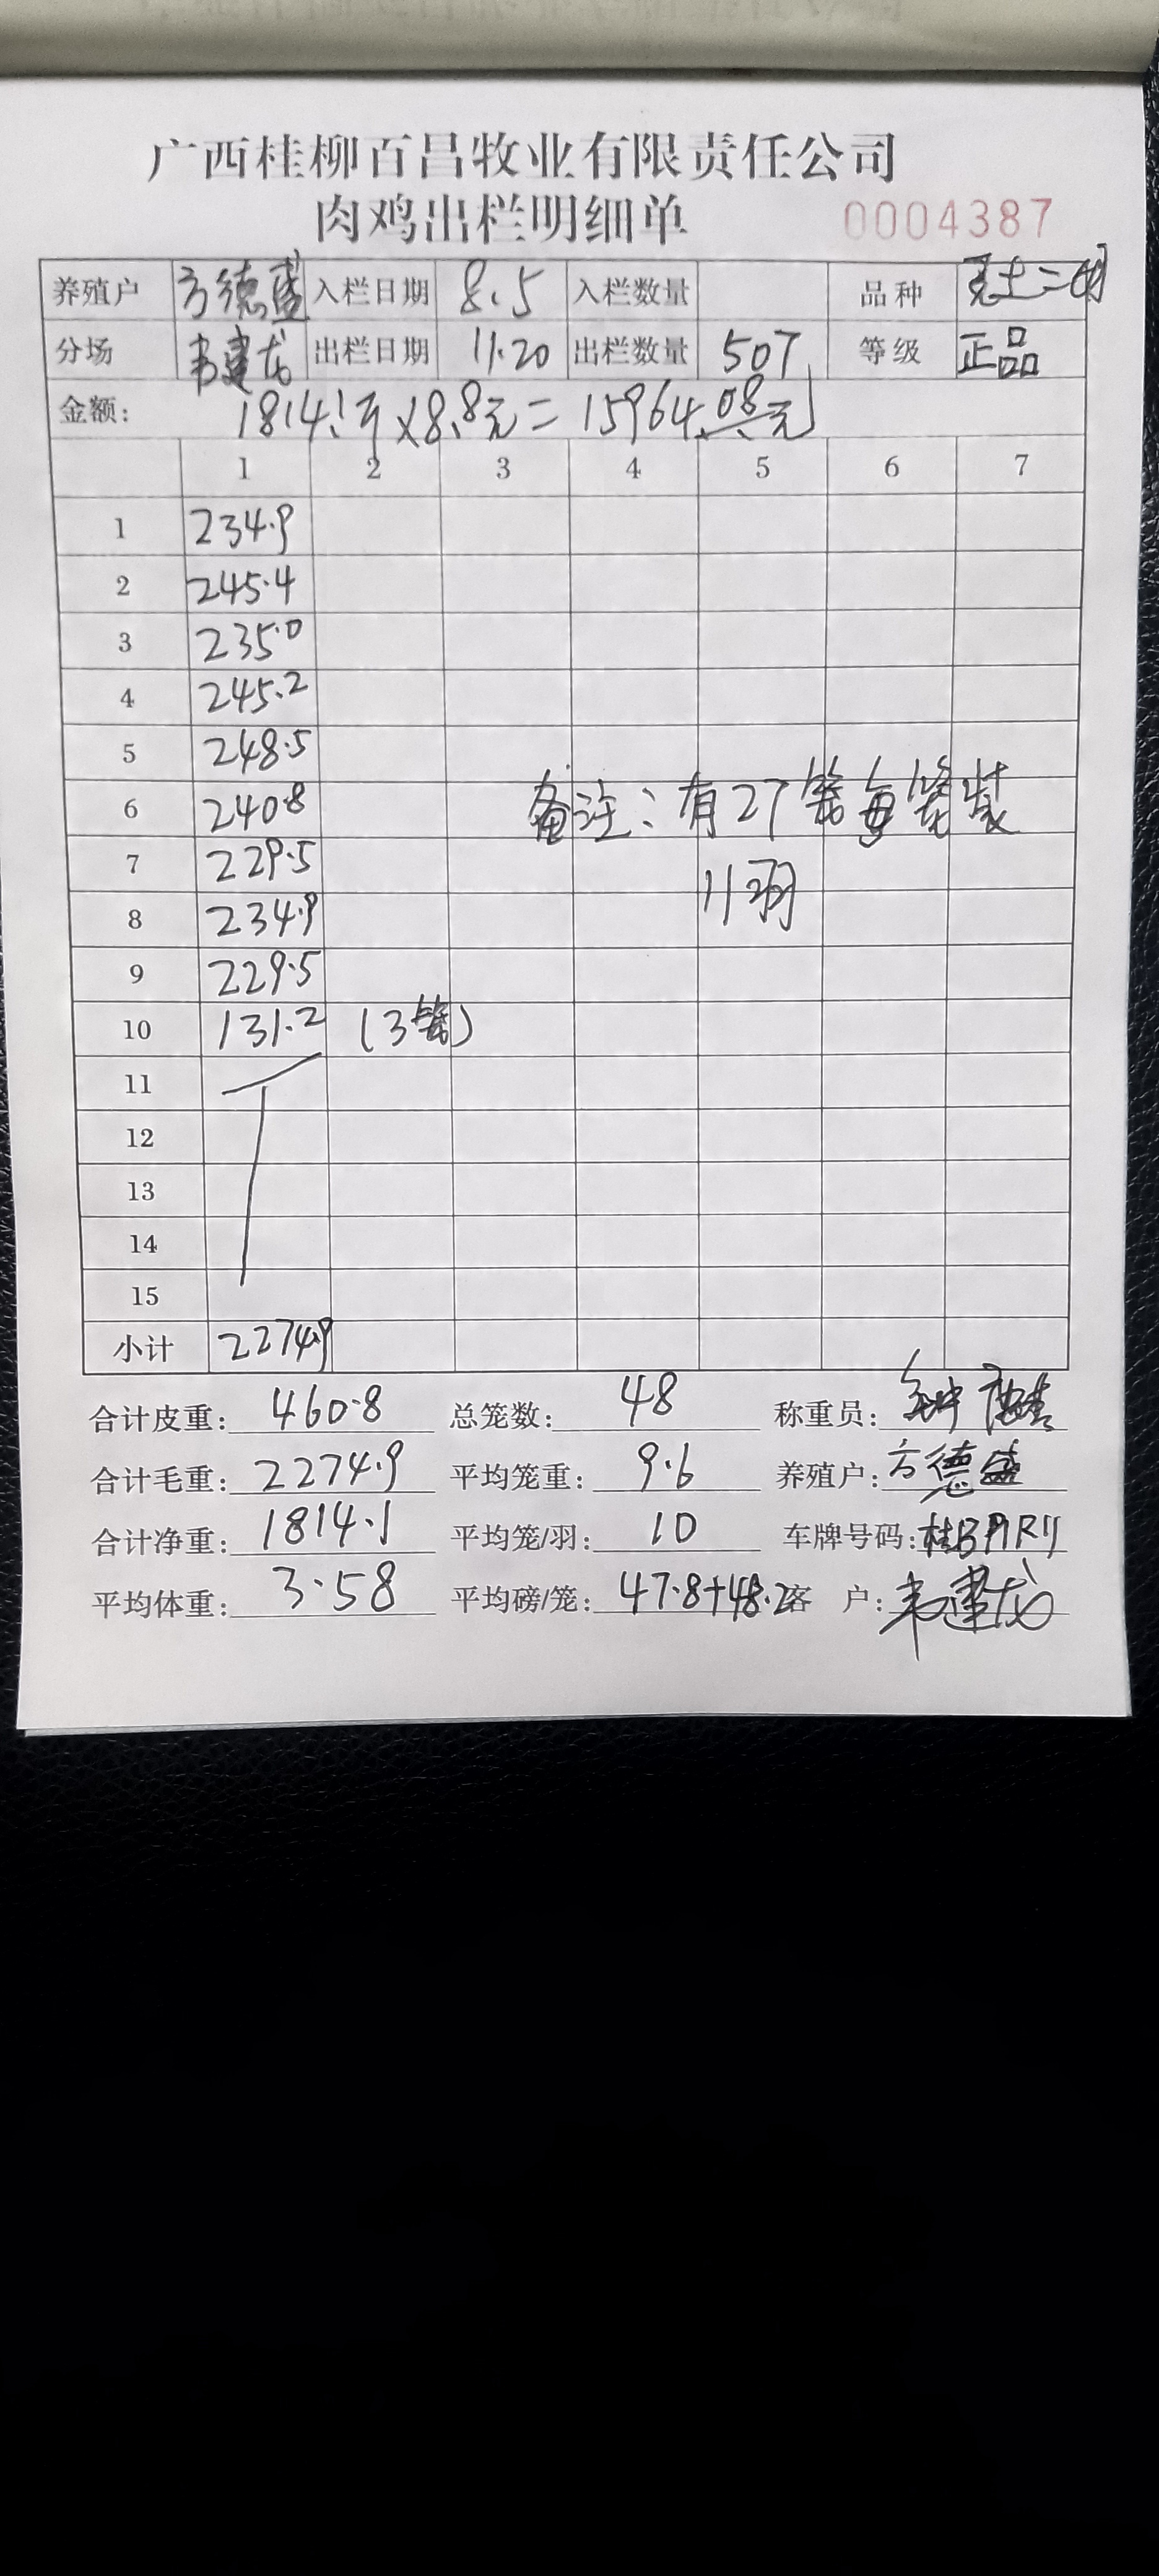 广西桂柳百昌牧业有限责任公司
肉鸡出栏明细单 0004387
养殖户 方德盛 入栏日期 8.5 入栏数量 品种
分场 韦建龙 出栏日期 11.20 出栏数量 507 等级 正品
金额: 1814.1斤×8.8元=15964.08元
1 2 3 4 5 6 7
1 234.9
2 245.4
3 235.0
4 245.2
5 248.5
6 240.8 备注:有27笼每笼装
7 229.5 11羽
8 234.9
9 229.5
10 131.2 (3笼)
11
12
13
14
15
小计 2274.9
合计皮重: 460.8 总笼数: 48 称重员:
合计毛重: 2274.9 平均笼重: 9.6 养殖户: 方德盛
合计净重: 1814.1 平均笼/羽: 10 车牌号码:
平均体重: 3.58 平均磅/笼: 47.8+48.2 客 户: 韦建龙